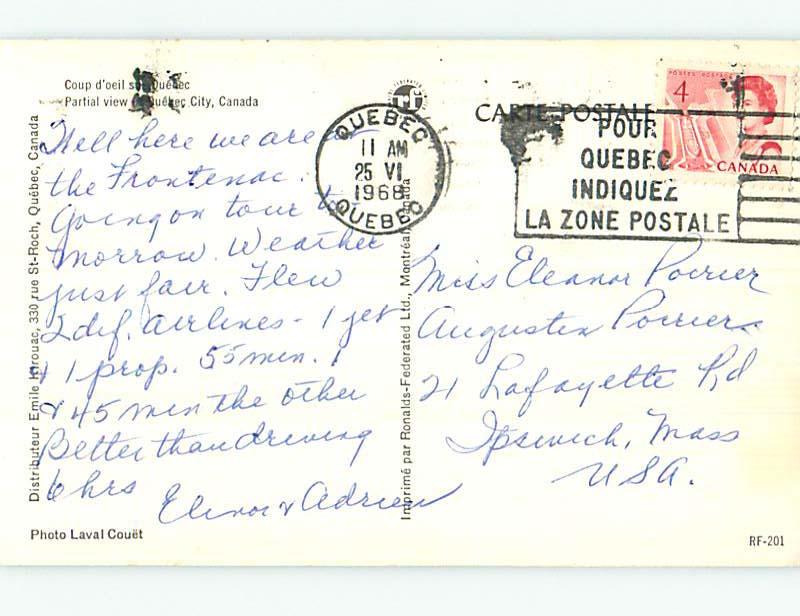 Coup d'oeil sur Québec
Partial view of Québec City, Canada
CARTE POSTALE
POSTES POSTAGE
4
CANADA
QUEBEC
11 AM
25 VI
1968
QUEBEC
POUR
QUEBEC
INDIQUEZ
LA ZONE POSTALE
Well here we are
the Frontenac.
Going on tour to
morrow. Weather
just fair. Flew
2 dif. airlines - 1 jet
& 1 prop. 55 min. 1
& 45 min the other
Better than driving
6 hrs
Elinor & Adrien
Miss Eleanor Poirier
Augustin Poiriers
21 Lafayette Rd
Ipswich, Mass
USA.
Distributeur Emile Kirouac, 330 rue St-Roch, Québec, Canada
Imprimé par Ronalds-Federated Ltd., Montréal, Canada
Photo Laval Couët
RF-201